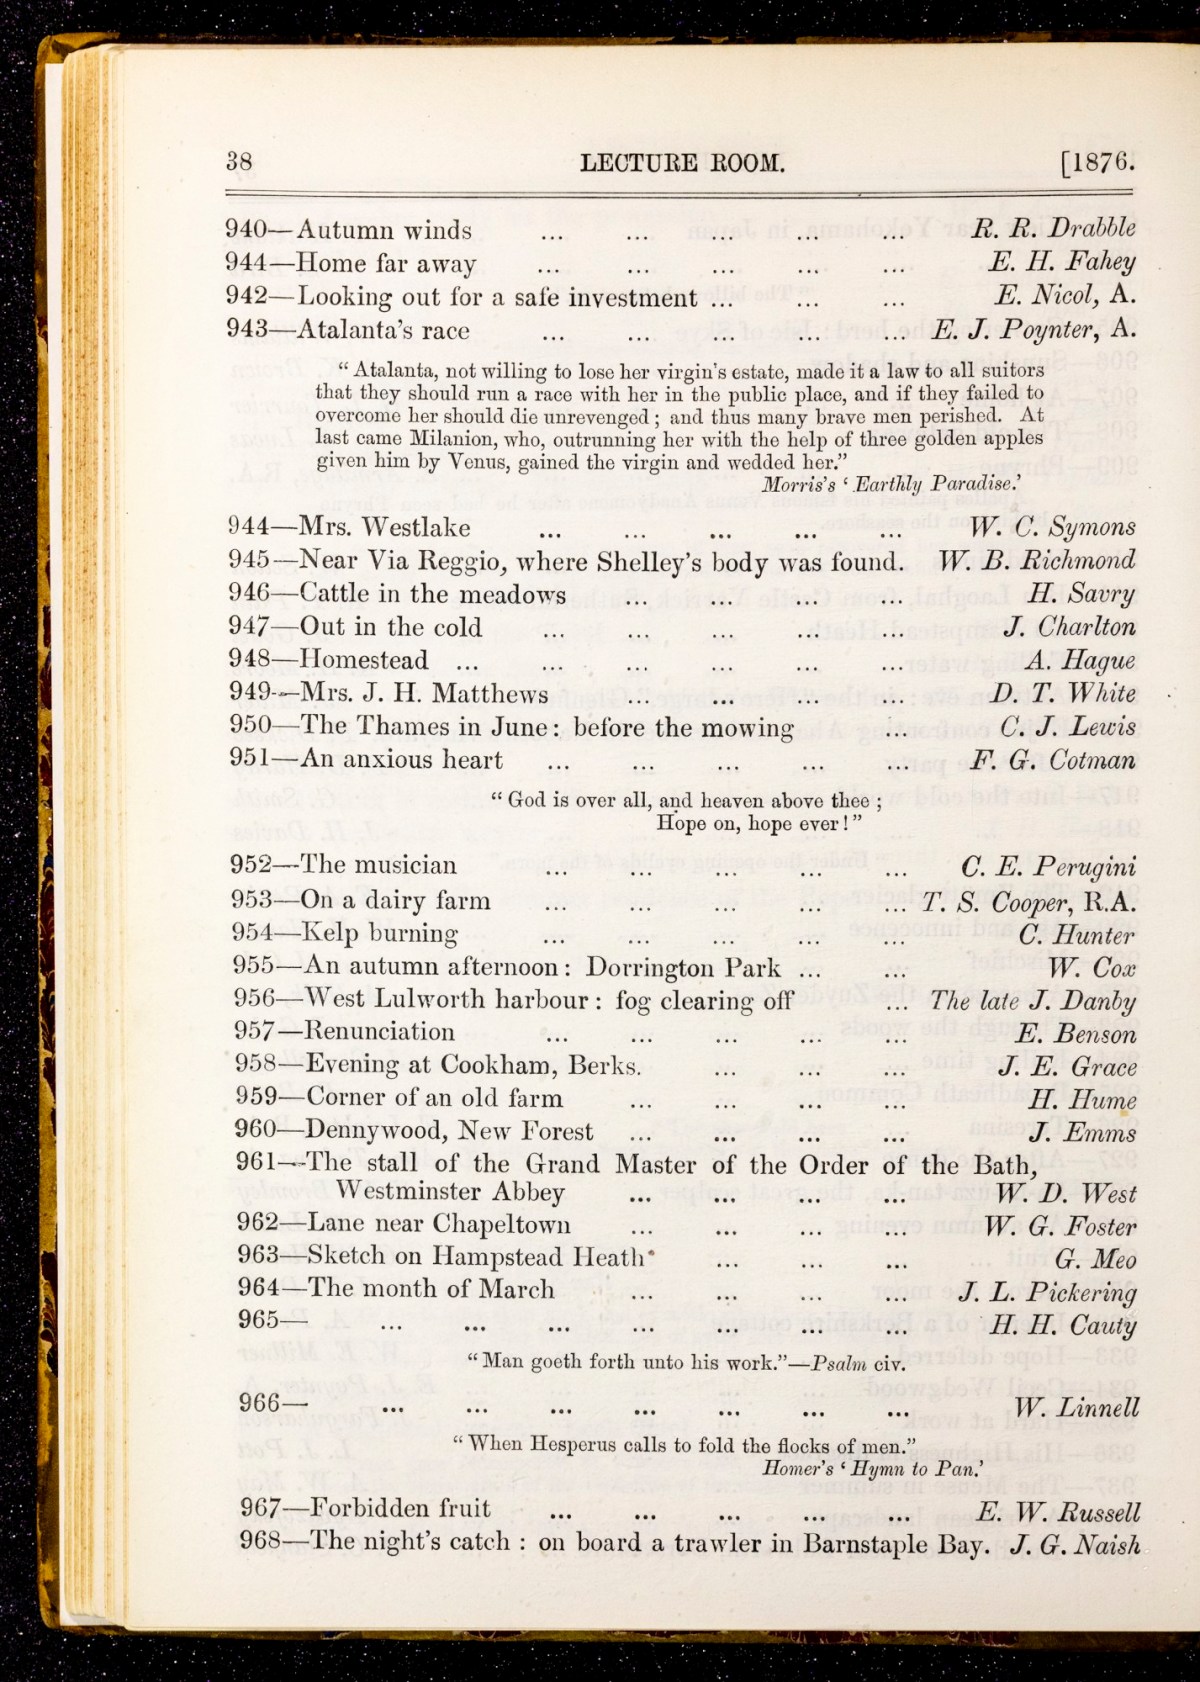 38 LECTURE ROOM. [1876.
940—Autumn winds ... ... ... ... ... R. R. Drabble
944—Home far away ... ... ... ... ... E. H. Fahey
942—Looking out for a safe investment ... ... ... E. Nicol, A.
943—Atalanta's race ... ... ... ... ... E. J. Poynter, A.
"Atalanta, not willing to lose her virgin's estate, made it a law to all suitors
that they should run a race with her in the public place, and if they failed to
overcome her should die unrevenged; and thus many brave men perished. At
last came Milanion, who, outrunning her with the help of three golden apples
given him by Venus, gained the virgin and wedded her."
Morris's 'Earthly Paradise.'
944—Mrs. Westlake ... ... ... ... ... W. C. Symons
945—Near Via Reggio, where Shelley's body was found. W. B. Richmond
946—Cattle in the meadows ... ... ... ... H. Savry
947—Out in the cold ... ... ... ... ... J. Charlton
948—Homestead ... ... ... ... ... ... A. Hague
949—Mrs. J. H. Matthews ... ... ... ... D. T. White
950—The Thames in June: before the mowing ... C. J. Lewis
951—An anxious heart ... ... ... ... ... F. G. Cotman
"God is over all, and heaven above thee;
Hope on, hope ever!"
952—The musician ... ... ... ... ... C. E. Perugini
953—On a dairy farm ... ... ... ... ... T. S. Cooper, R.A.
954—Kelp burning ... ... ... ... ... C. Hunter
955—An autumn afternoon: Dorrington Park ... ... W. Cox
956—West Lulworth harbour: fog clearing off ... The late J. Danby
957—Renunciation ... ... ... ... ... E. Benson
958—Evening at Cookham, Berks. ... ... ... J. E. Grace
959—Corner of an old farm ... ... ... ... H. Hume
960—Dennywood, New Forest ... ... ... ... J. Emms
961—The stall of the Grand Master of the Order of the Bath,
Westminster Abbey ... ... ... ... W. D. West
962—Lane near Chapeltown ... ... ... ... W. G. Foster
963—Sketch on Hampstead Heath ... ... ... G. Meo
964—The month of March ... ... ... ... J. L. Pickering
965— ... ... ... ... ... ... ... H. H. Cauty
"Man goeth forth unto his work."—Psalm civ.
966— ... ... ... ... ... ... ... W. Linnell
"When Hesperus calls to fold the flocks of men."
Homer's 'Hymn to Pan.'
967—Forbidden fruit ... ... ... ... ... E. W. Russell
968—The night's catch: on board a trawler in Barnstaple Bay. J. G. Naish